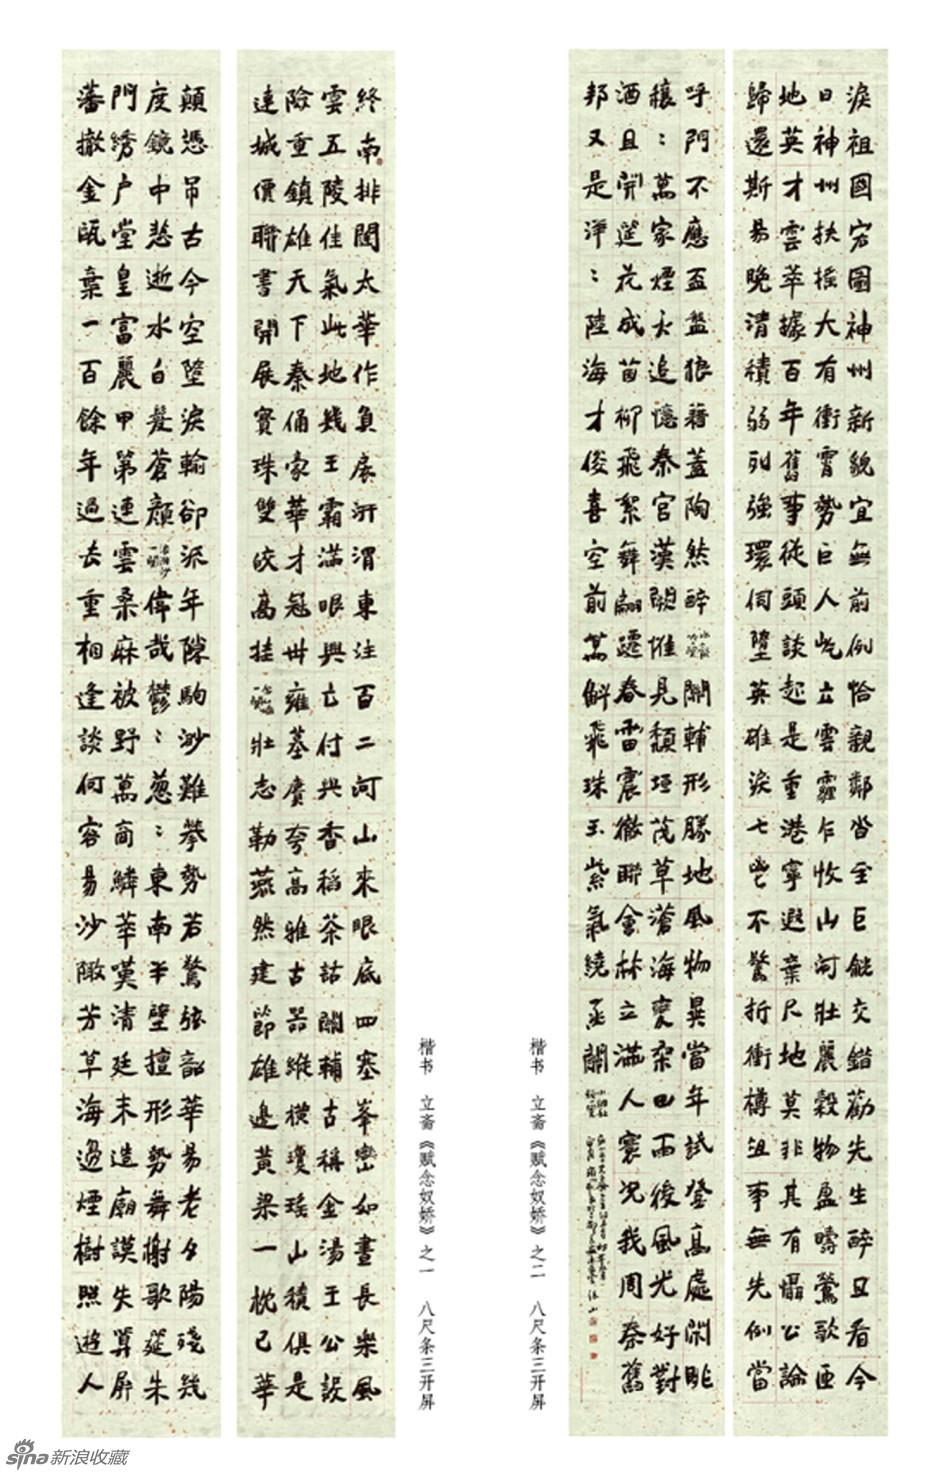 終南排闥太華作負扆汧渭東注百二河山來眼底四塞峯巒如畫長樂風
雲五陵佳氣此地幾王霸滿眼興亡付與香稻茶話關輔古稱金湯王公設
險重鎮雄天下秦俑豪華才冠世雍墓賡夸高雅古器縱橫瓊瑤山積俱是
連城價聯書開展寶珠雙皎高挂壯志勒燕然建節雄邊黃粱一枕已華
顛憑吊古今空墮淚輸卻派年隙駒渺難攀勢若驚弦韶華易老夕陽殘幾
度鏡中愁逝水白髮蒼顏偉哉鬱々蔥々東南半壁擅形勢舞榭歌筵朱
門綉户堂皇富麗甲第連雲桑麻被野萬商鱗萃嘆清廷末造廟謨失算屏
藩撤金甌棄一百餘年過去重相逢談何容易沙芳草海過煙樹照遊人
楷书 立斋《赋念奴娇》之一 八尺条三开屏
淚祖國宏圖神州新貌宜無前例恰親鄰皆至巨觥交錯勸先生醉且看今
日神州扶搖大有衝霄勢巨人屹立雲霾乍收山河壯麗穀物盈疇鶯歌匝
地英才雲萃據百年舊事從頭談起是重港寧遐棄尺地莫非其有懾公論
歸還斯易晚清積弱列強環伺墮英雄淚七鬯不驚折衝樽俎事無先例當
呼門不應盃盤狼藉蓋陶然醉關輔形勝地風物異當年試登高處閑眺
穰々萬家煙火追憶秦宮漢闕惟見頹垣茂草滄海變桑田雨後風光好對
酒且開筵花成茵柳飛絮舞翩躚春雷震徹聯會林立滿人寰况我周秦舊
邦又是洋々陸海才俊喜空前萬斛飛珠玉紫氣繞函關
楷书 立斋《赋念奴娇》之二 八尺条三开屏
sina新浪收藏